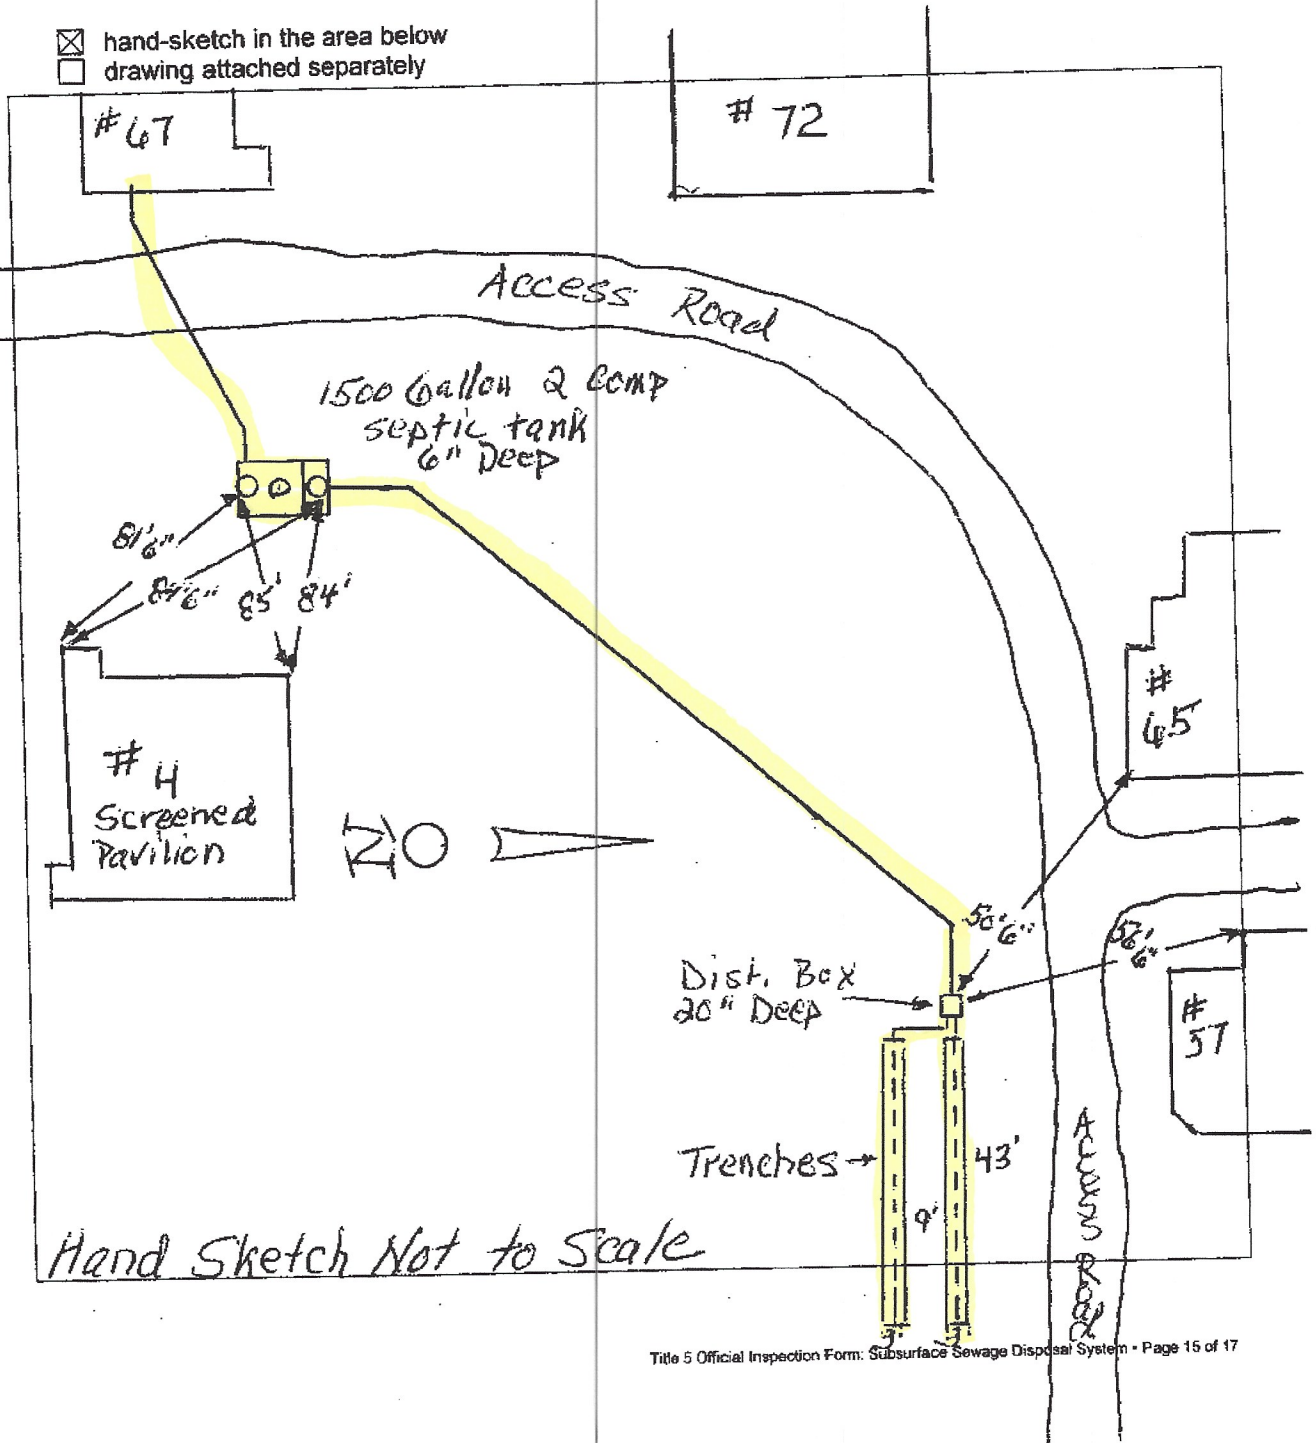 hand-sketch in the area below
drawing attached separately
# 67
# 72
Access Road
1500 Gallon 2 Comp
septic tank
6" Deep
81'
6"
6"
85'
84'
#
65
# 4
Screened
Pavilion
NO
50'
6"
56'
6"
Dist. Box
20" Deep
#
57
Trenches
43'
9'
Access Road
Hand Sketch Not to Scale
3'
3'
Title 5 Official Inspection Form: Subsurface Sewage Disposal System • Page 15 of 17